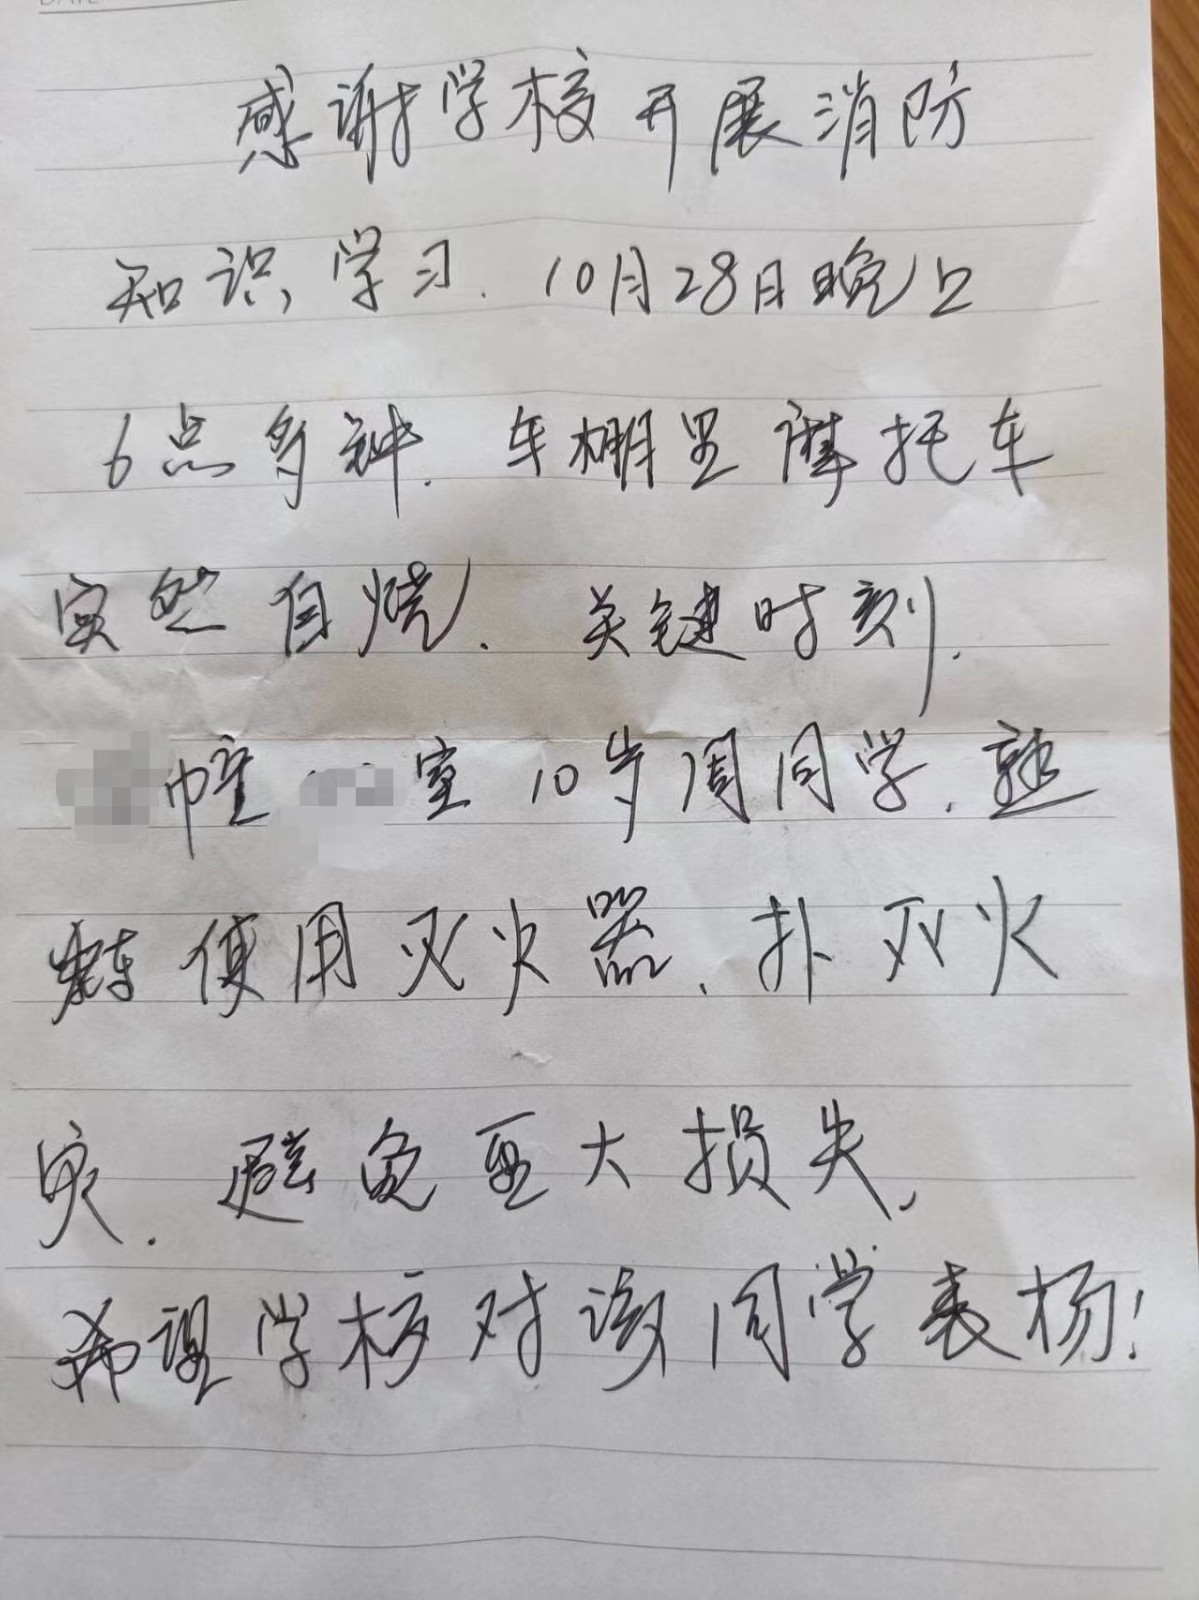 感谢学校开展消防
知识学习.10月28日晚上
6点多钟.车棚里摩托车
突然自烧.关键时刻.
幢 室10岁周同学.熟
练使用灭火器、扑灭火
灾.避免更大损失,
希望学校对该同学表扬!